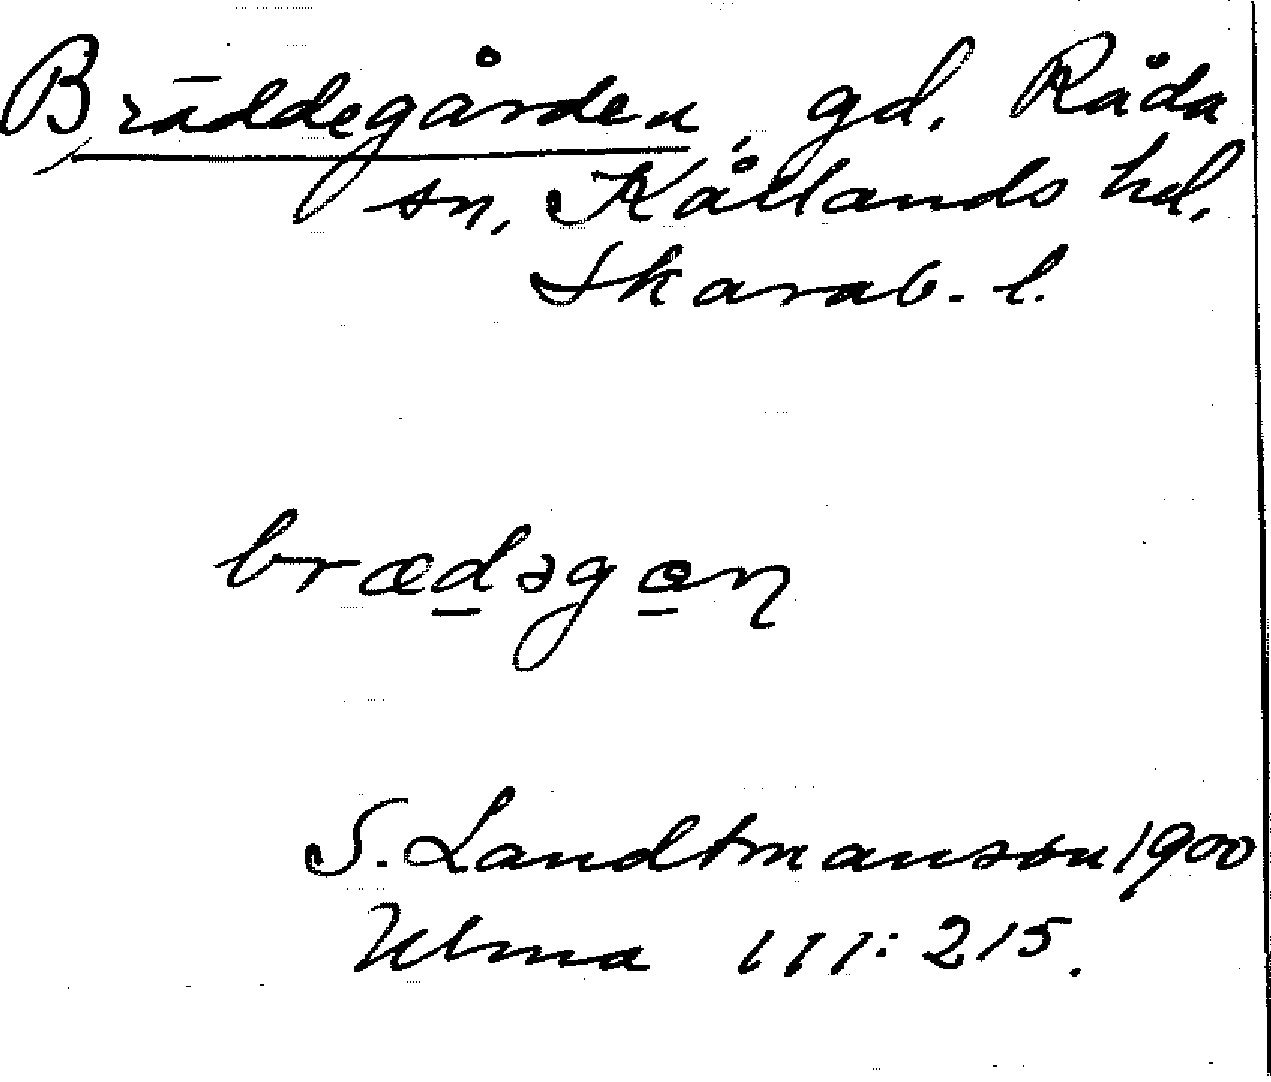 Bräddegården, gd. Råda
sn, Kållands hd.
Skarab. l.
brædəgɵn
S. Landtmanson 1900
Ulma 111:215.